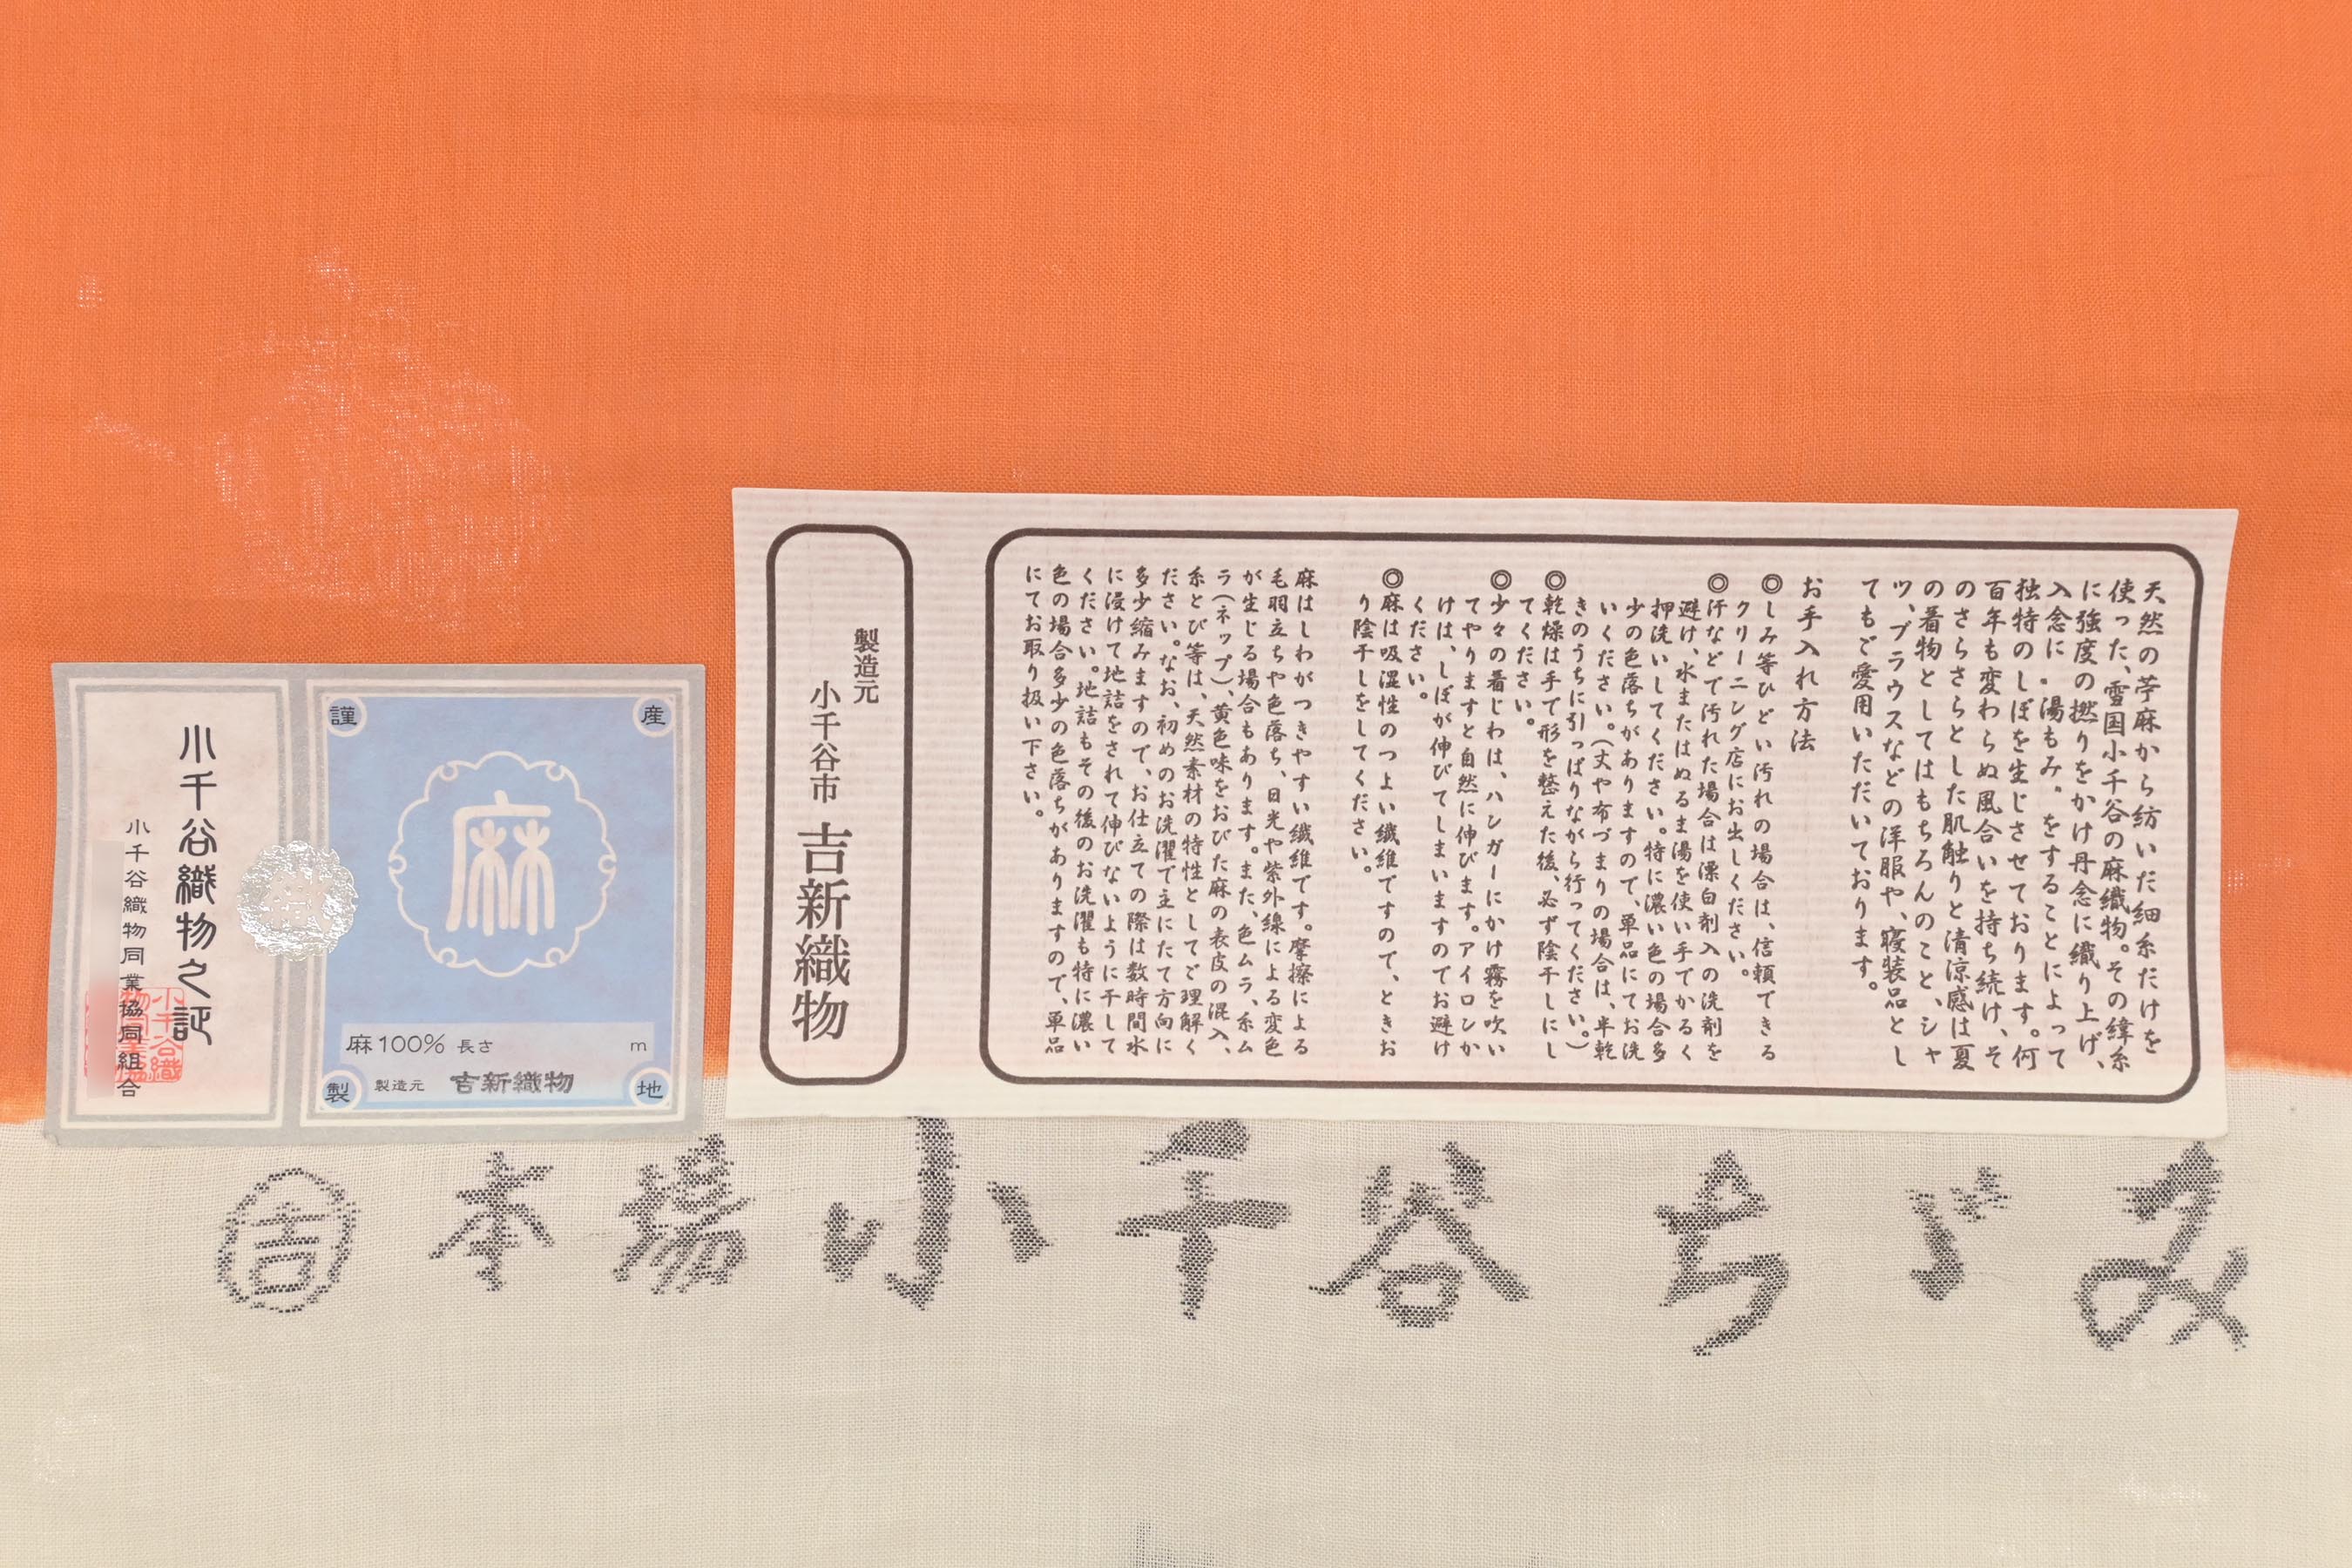 天然の苧麻から紡いだ細糸だけを
使った、雪国小千谷の麻織物。その緯糸
に強度の撚りをかけ丹念に織り上げ、
入念に〝湯もみ〟をすることによって
独特のしぼを生じさせております。何
百年も変わらぬ風合いを持ち続け、そ
のさらさらとした肌触りと清涼感は夏
の着物としてはもちろんのこと、シャ
ツ、ブラウスなどの洋服や、寝装品とし
てもご愛用いただいております。
お手入れ方法
◎しみ等ひどい汚れの場合は、信頼できる
クリーニング店にお出しください。
◎汗などで汚れた場合は漂白剤入の洗剤を
避け、水またはぬるま湯を使い手でかるく
押洗いしてください。特に濃い色の場合多
少の色落ちがありますので、単品にてお洗
いください。(丈や布づまりの場合は、半乾
きのうちに引っぱりながら行ってください。)
◎乾燥は手で形を整えた後、必ず陰干しにし
てください。
◎少々の着じわは、ハンガーにかけ霧を吹い
てやりますと自然に伸びます。アイロンか
けは、しぼが伸びてしまいますのでお避け
ください。
◎麻は吸湿性のつよい繊維ですので、ときお
り陰干しをしてください。
麻はしわがつきやすい繊維です。摩擦による
毛羽立ちや色落ち、日光や紫外線による変色
が生じる場合もあります。また、色ムラ、糸ム
ラ(ネップ)、黄色味をおびた麻の表皮の混入、
糸とび等は、天然素材の特性としてご理解く
ださい。なお、初めのお洗濯で主にたて方向に
多少縮みますので、お仕立ての際は数時間水
に浸けて地詰をされて伸びないように干して
ください。地詰もその後のお洗濯も特に濃い
色の場合多少の色落ちがありますので、単品
にてお取り扱い下さい。
製造元
小千谷市 吉新織物
謹
産
製
地
麻
麻100% 長さ m
製造元 吉新織物
小千谷織物之証
小千谷織物同業協同組合
吉 本場小千谷ちぢみ